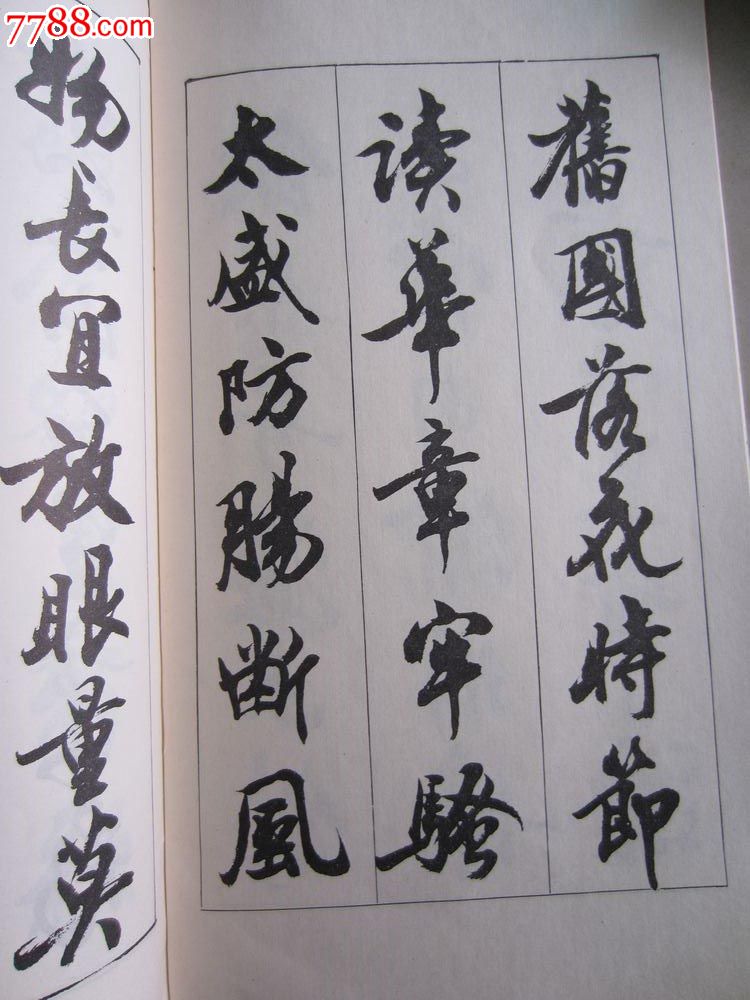 7788.com
舊國落花時節
读華章牢騷
太盛防腸断風
物长宜放眼量莫